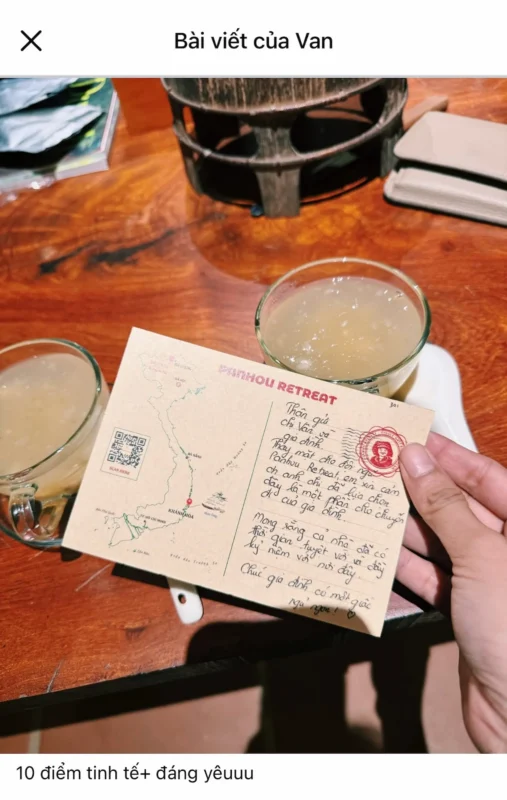 Bài viết của Van
PANHOU RETREAT
Thân gửi
chị Vân và
gia đình
Thay mặt cho đội ngũ
Panhou Retreat, em xin cảm
ơn anh chị đã lựa chọn
đây là một phần cho chuyến
đi của gia đình.
Mong rằng cả nhà đã có
thời gian tuyệt vời và đầy
kỷ niệm với nơi đây
Chúc gia đình có một giấc
ngủ ngon!
ĐÀ NẴNG
KHÁNH HÒA
10 điểm tinh tế+ đáng yêuuu